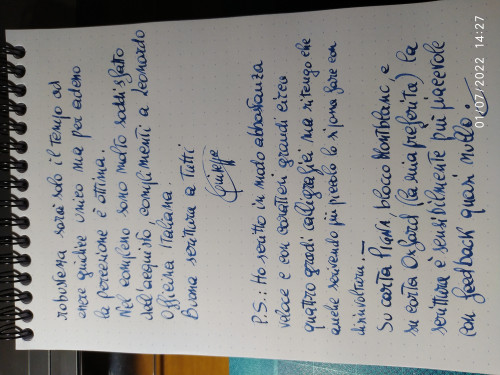 robustezza sarà solo il tempo ad
essere giudice unico ma per adesso
la percezione è ottima.
Nel complesso sono molto soddisfatto
dell'acquisto complimenti a Leonardo
Officina Italiana.
Buona scrittura a Tutti
Giuseppe
P.S.: Ho scritto in modo abbastanza
veloce e con caratteri grandi circa
quattro gradi calligrafici ma ritengo che
anche scrivendo più piccolo lo si possa fare con
disinvoltura.—
Su carta Pigna, blocco Montblanc e
su carta Oxford (la mia preferita) la
scrittura è sensibilmente più piacevole
con feedback quasi nullo.
01/07/2022 14:27